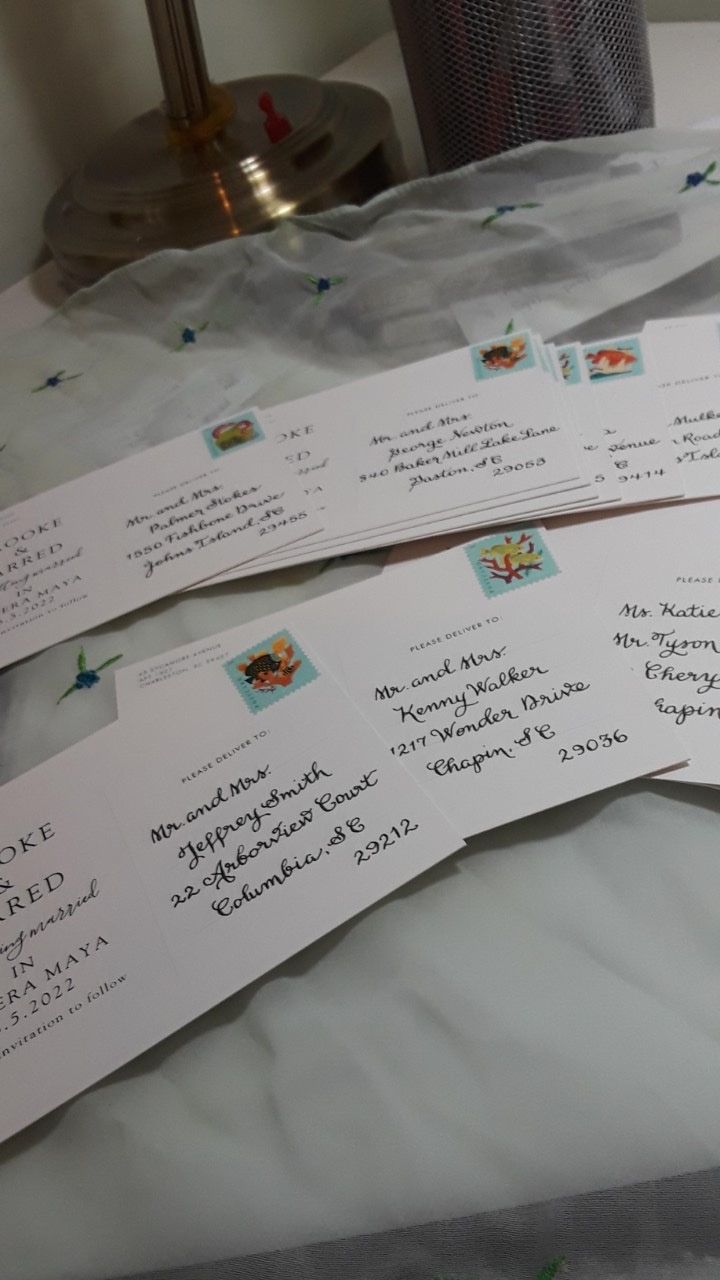 OOKE
&
ARRED
IN
ERA MAYA
5.2022
invitation to follow
PLEASE DELIVER TO:
Mr. and Mrs.
Palmer Stokes
1550 Fishbone Drive
Johns Island, SC
29455
OKE
ED
YA
PLEASE DELIVER TO:
Mr. and Mrs.
George Newton
840 Baker Mill Lake Lane
Gaston, SC
29053
venue
C
9414
DELIVER TO:
Mulke
Road
Isla
OKE
&
RRED
ing married
IN
ERA MAYA
.5.2022
nvitation to follow
SYCAMORE AVENUE
CHARLESTON, SC 29407
PLEASE DELIVER TO:
Mr. and Mrs.
Jeffrey Smith
22 Arborview Court
Columbia, SC
29212
PLEASE DELIVER TO:
Mr. and Mrs.
Kenny Walker
1217 Wonder Drive
Chapin, SC
29036
PLEASE D
Ms. Katie
Mr. Tyson
Chery